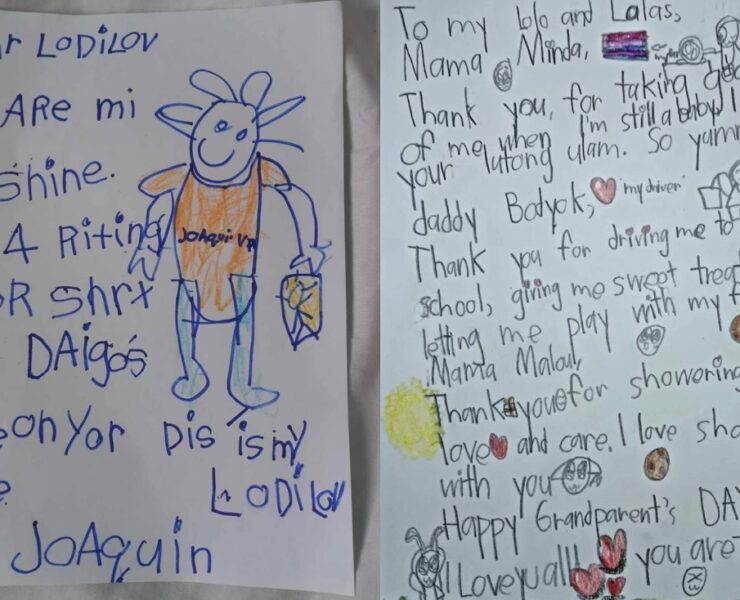 r LODiLOV
ARe mi
Shine.
4 Riting
JOAQUiVR
R Shrt
DAigos
on Yor Dis is my
LODiLOV
JOAquin
To my lolo and Lalas,
Mama Minda,
Thank you, for taking good
of me when I'm still a baby, I
your lutong ulam. So yamm
daddy Bodyok, "my driver"
Thank you for driving me to
school, giving me sweet treat
letting me play with my f
Mama Malou,
Thank you for showoring
love and care. I love sha
with you
Happy Grandparent's DAY
I Love yu all!! you are